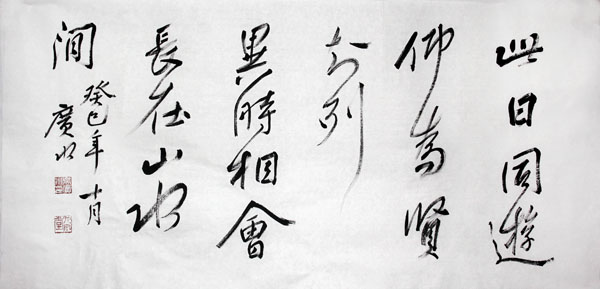 此日同遊
仰高賢
列
異時相會
長在山水
間
癸巳年十月
廣